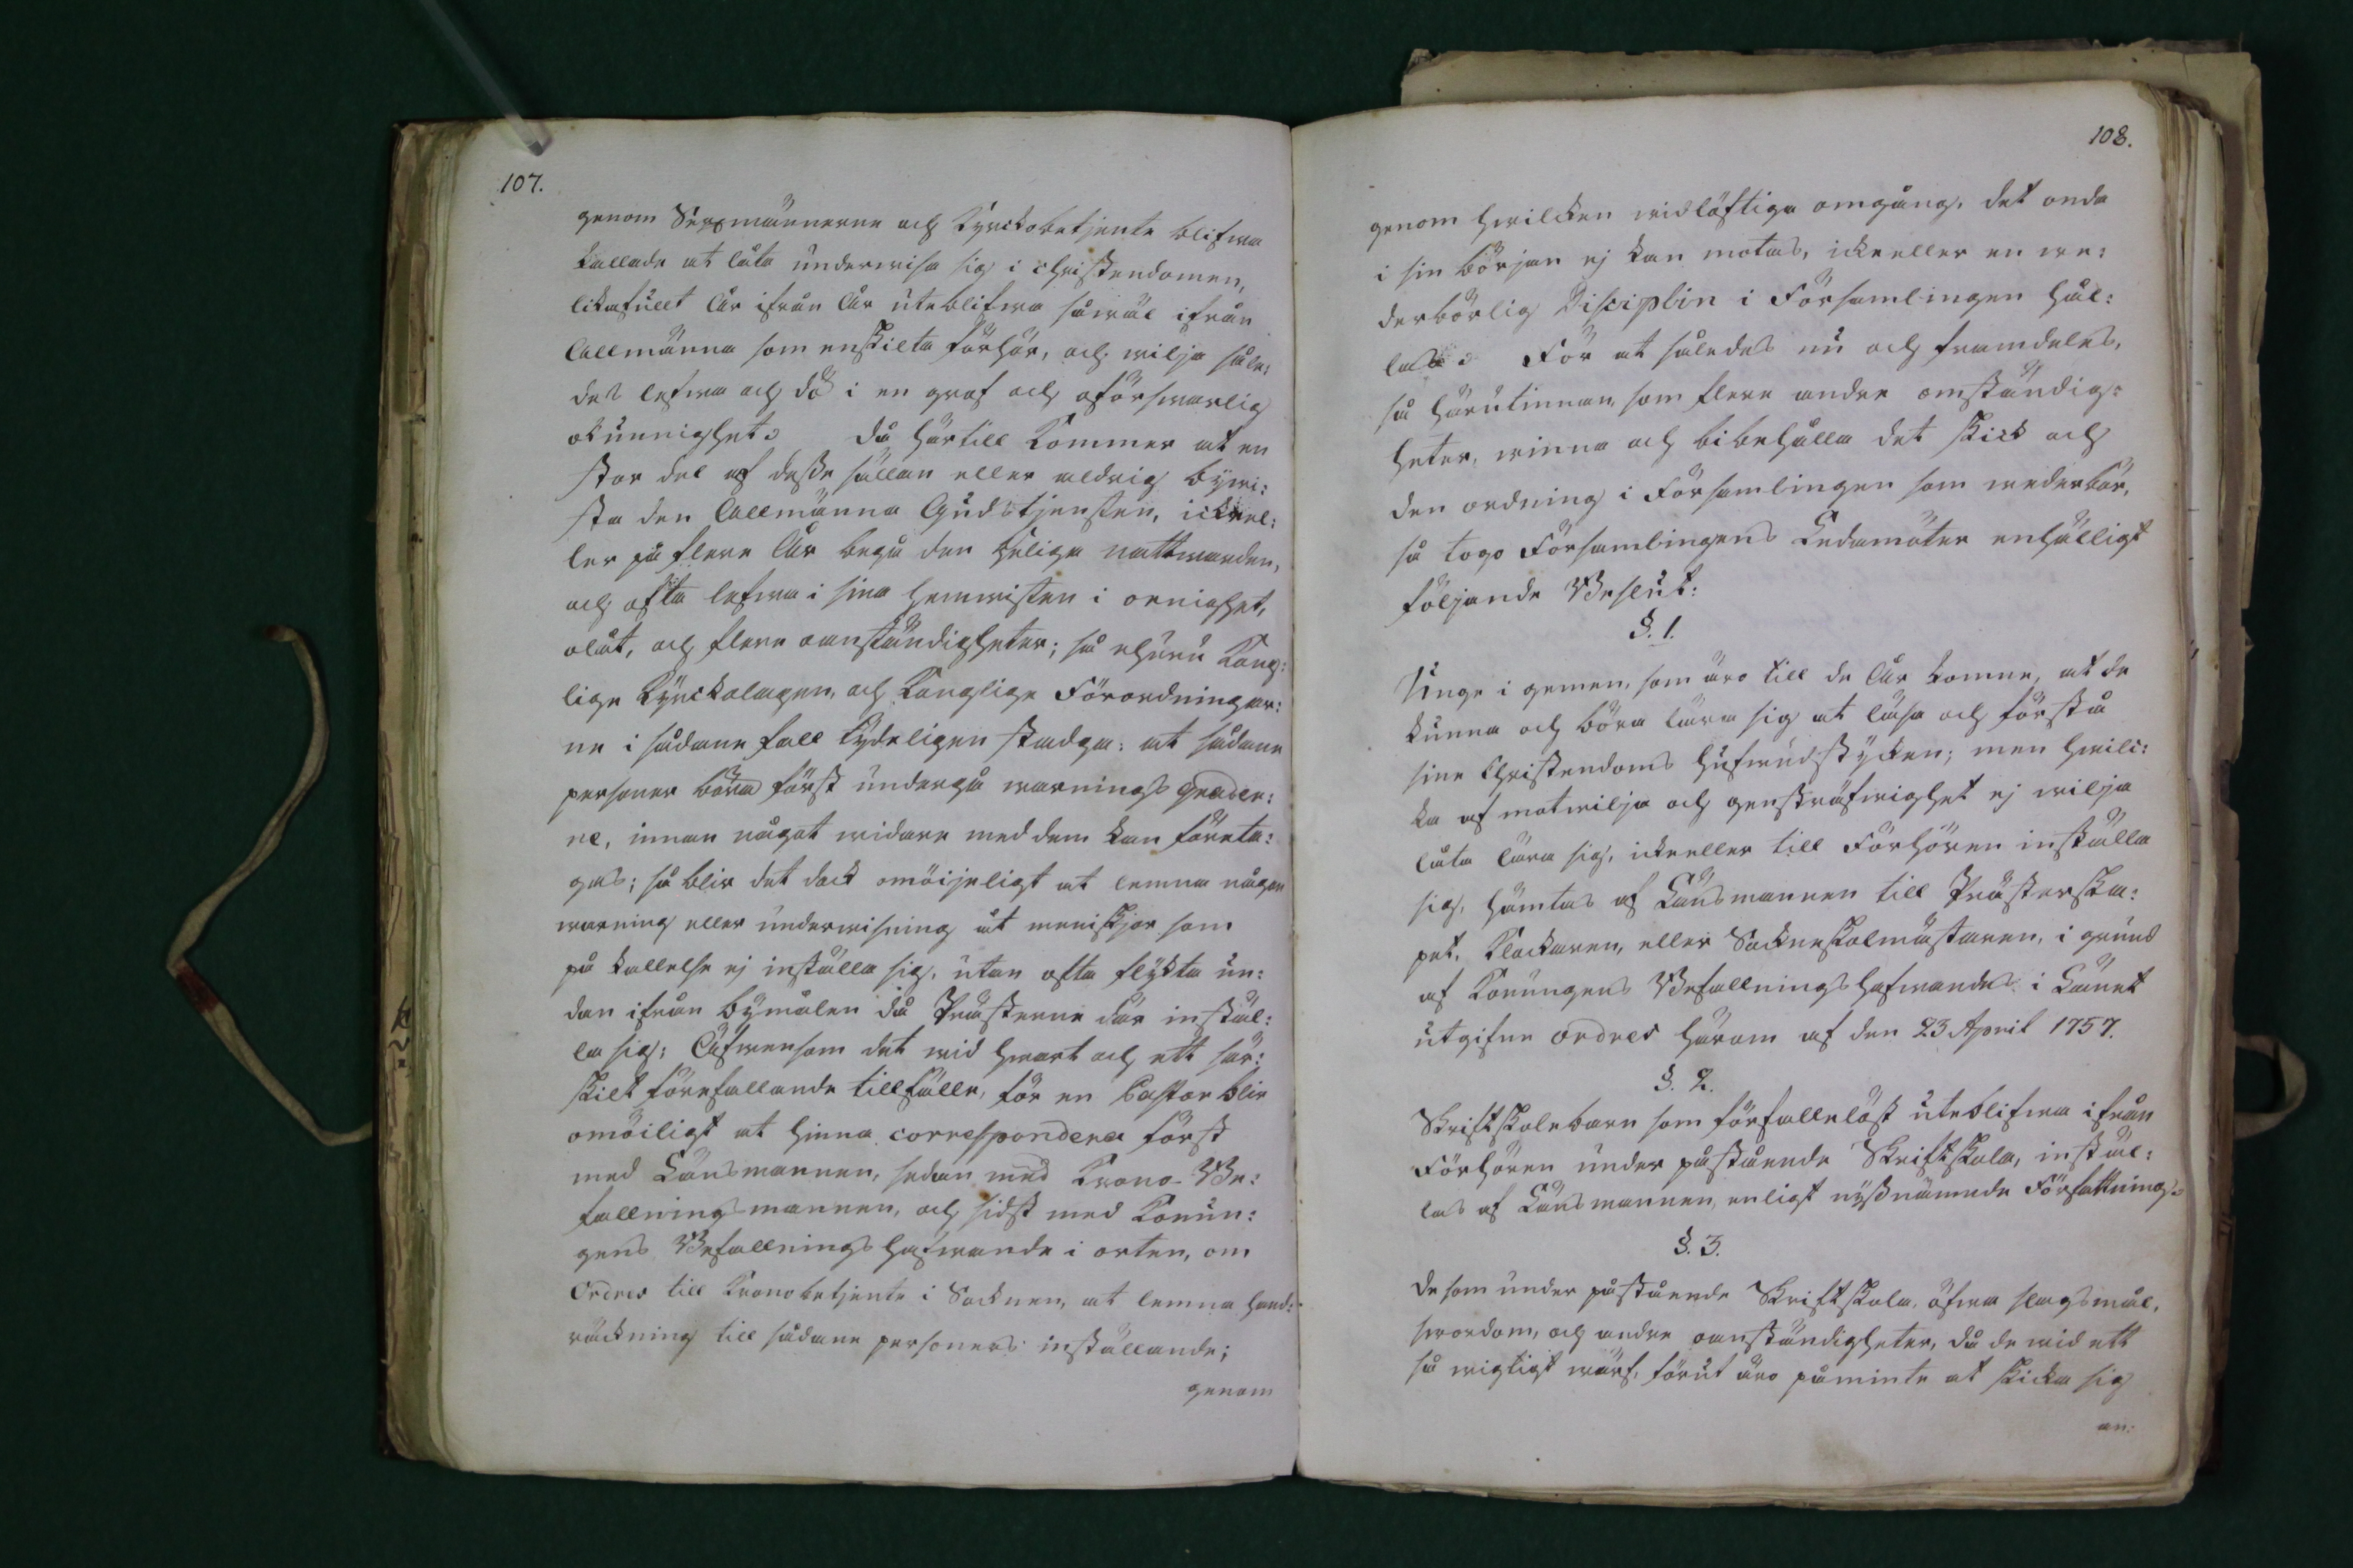 107.
genom Sexmännerne och Kyrckobetjente blifwa
kallade at låta underwisa sig i christendomen,
likafullt År ifrån År uteblifwa såwäl ifrån
Allmänna som enskilta förhör, och wilja såle:
des lefwa och dö i en grof och oförswarlig
okunnighet. Då härtill kommer at en
stor del af desse sällan eller aldrig bywi:
sta den Allmänna Gudstjensten, ickeel:
ler på flere År begå den heliga nattwarden,
och ofta lefwa i sina hemwisten i oenighet,
olåt, och flere oanständigheter; så ehuru Kong:
lige Kyrckolagen, och Konglige Förordningar:
ne i sådane fall tydeligen stadga: at sådane
personer böra först undergå warnings grader:
ne, innan något widare med dem kan företa:
gas; så blir det dock omöijeligt at lemna någon
warning eller underwisning åt meniskjor som
på kallelse ej inställa sig, utan ofta flykta un:
dan ifrån bymålen då Prästerne där instäl:
la sig: Äfwensom det wid hwart och ett sär:
skilt förefallande tillfälle, för en Pastor blir
omöiligt at hinna correspondera först
med Länsmannen, sedan med Krono-Be:
fallningsmannen, och sidst med Konun:
gens Befallningshafwande i orten, om
Ordres till Kronobetjente i Socknen, at lemna hand:
räckning till sådane personers inställande;
genom
108.
genom hwilcken widlöftiga omgång, det onda
i sin början ej kan motas, ickeeller en we:
derbörlig Disciplin i Församlingen hål:
las. För at således nu och framdeles,
så härutinnan, som flere andre omständig:
heter, winna och bibehålla det skick och
den ordning i Församlingen som wederbör,
så togo Församlingens Ledamöter enhälligt
följande Beslut:
§. 1.
Unge i gemen, som äro till de År komne, at de
kunna och böra lära sig at läsa och förstå
sine Christendoms hufwudstycken; men hwilc:
ka af motwilja och genstråfwighet ej wilja
låta lära sig, ickeeller till Förhören inställa
sig, hämtas af Länsmannen till Prästerska:
pet, Klockaren, eller Sockneskolmästaren, i grund
af Konungens Befallningshafwandes i Länet
utgifne ordres härom af den 23 April 1757.
§. 2.
Skriftskolebarn som förfallelöst uteblifwa ifrån
Förhören under påstående Skriftskola, instäl:
las af Länsmannen, enligt nyßnämnde Författning.
§. 3.
De som under påstående Skriftskola, öfwa slagsmål,
swordom, och andre oanständigheter, då de wid ett
så wigtigt wärf, förut äro påminte at skicka sig
an: